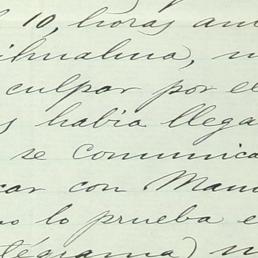 l 10, horas an
ihuahua, n
culpar por el
s habia llega
se comunica
car con Manu
o lo prueba e
légrama) n